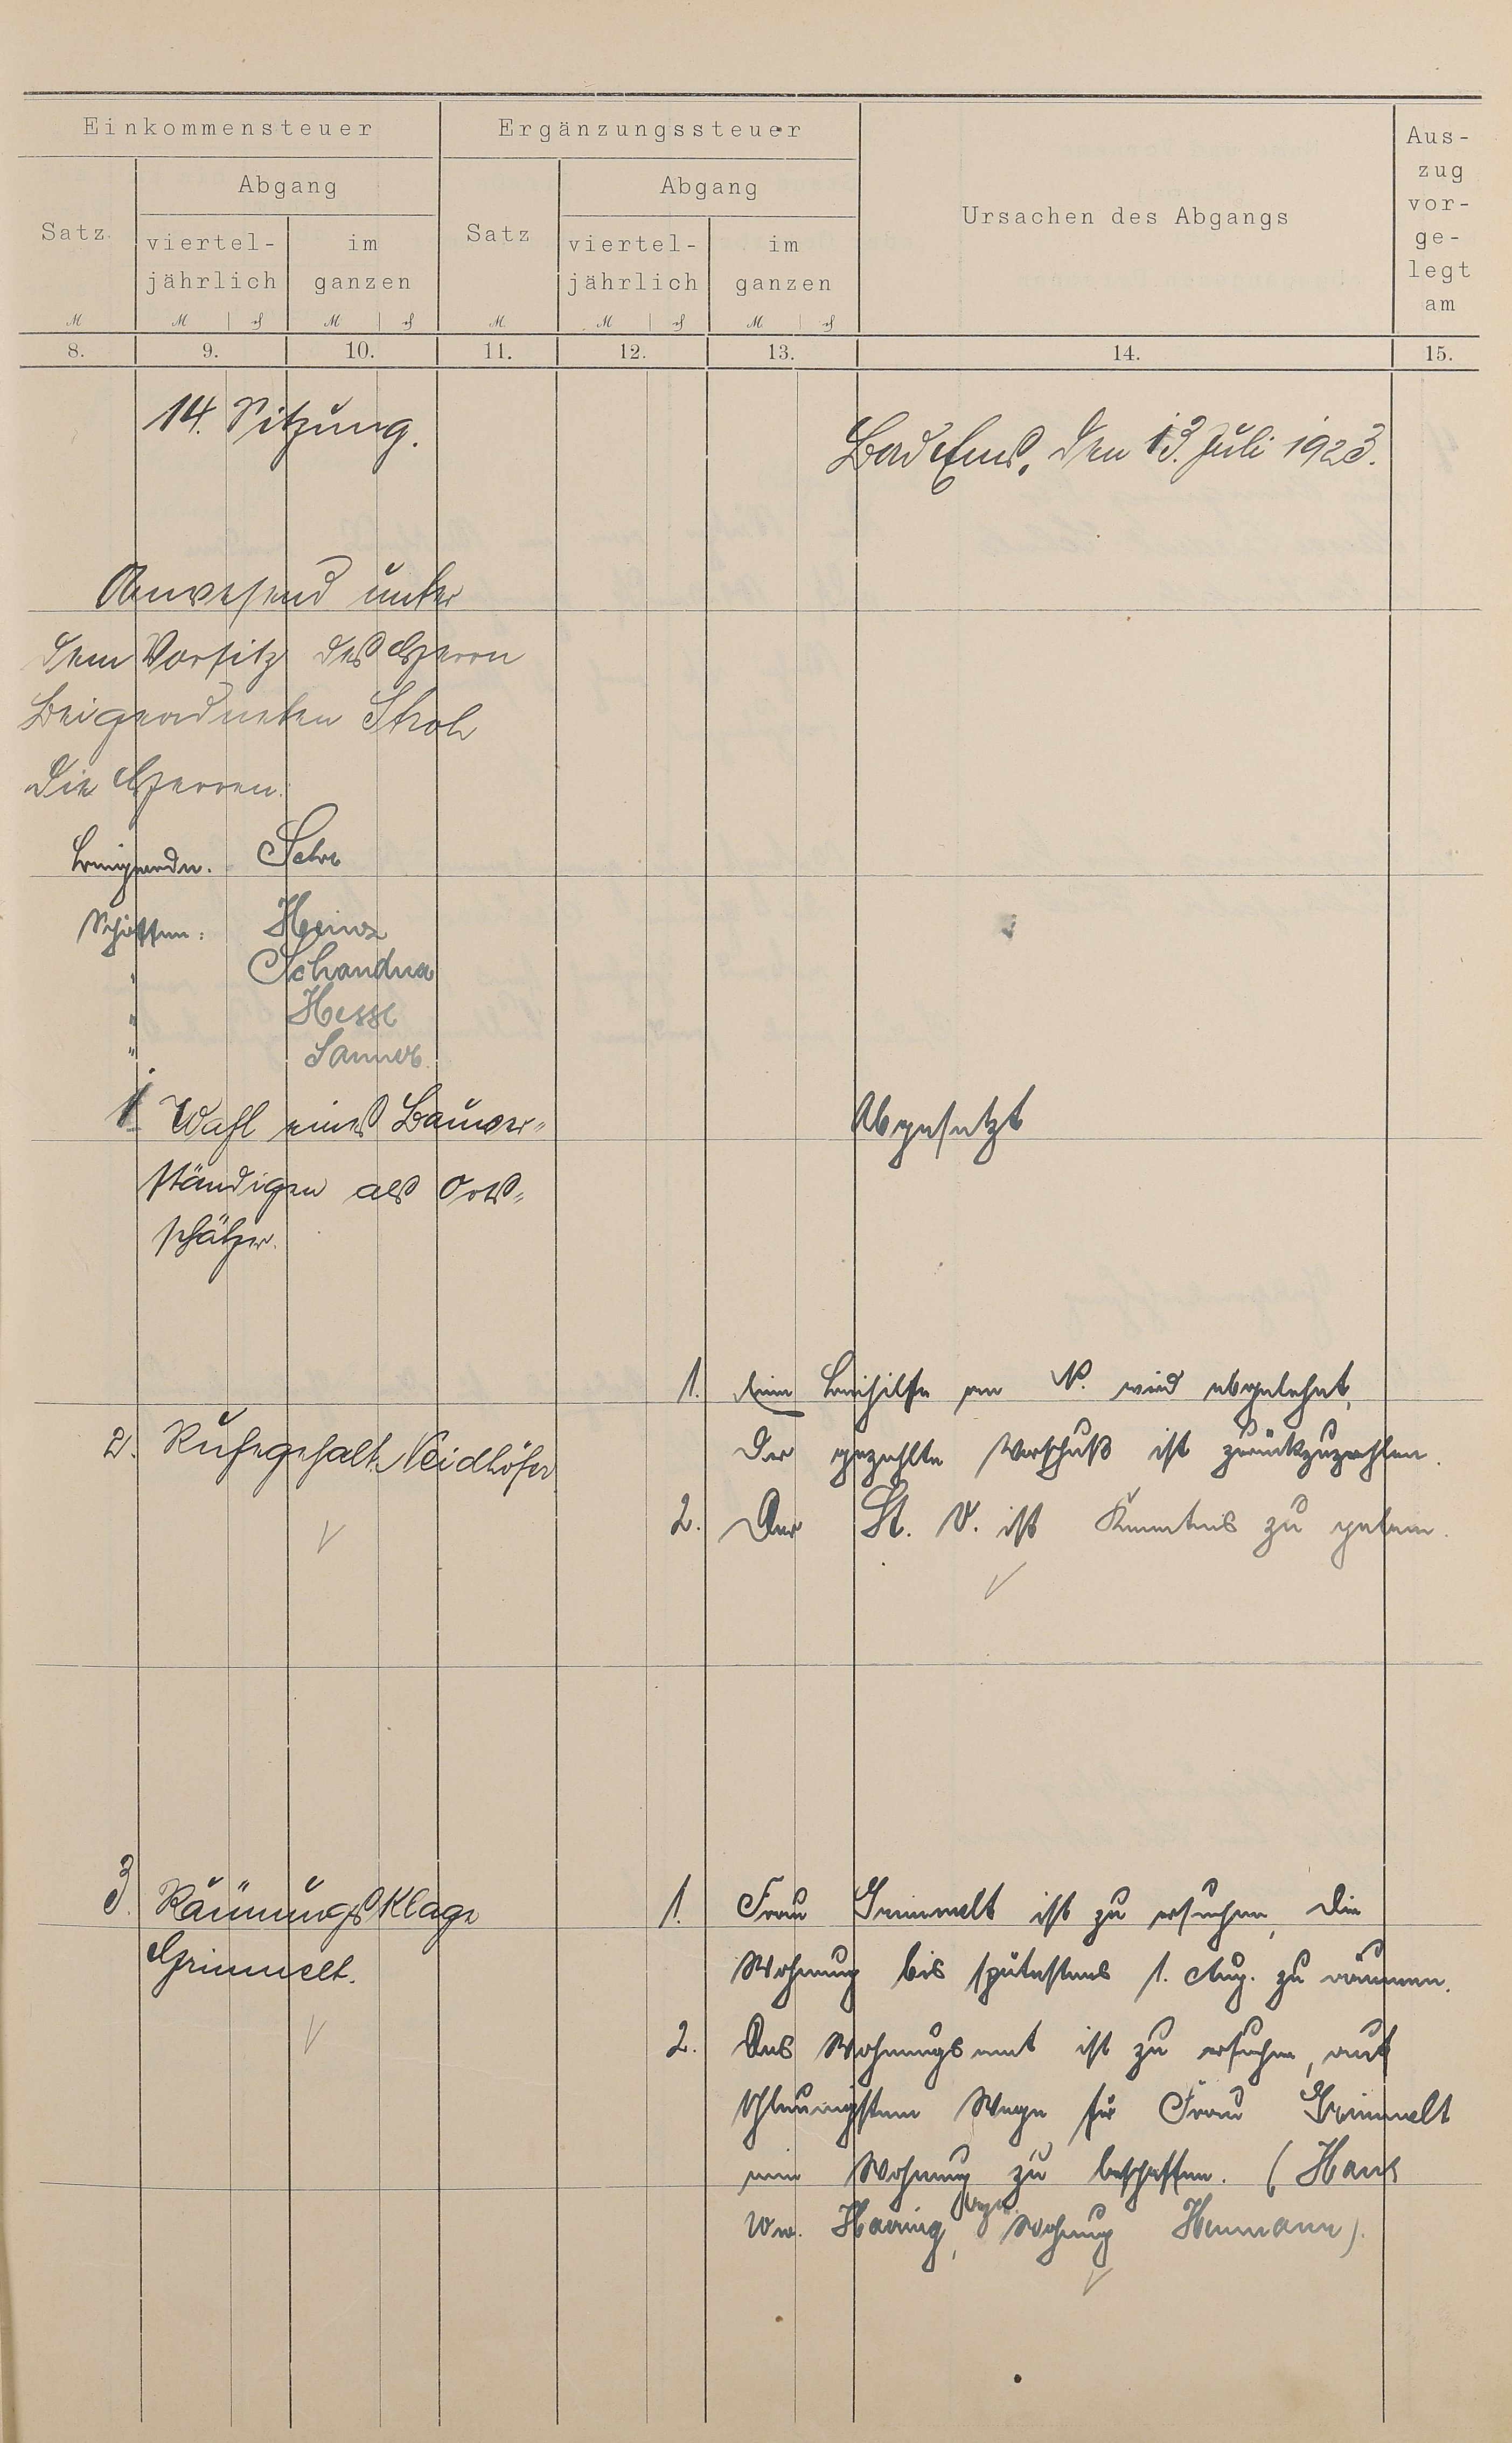 Einkommensteuer
Ergänzungssteuer
Ursachen des Abgangs
Aus-
zug
vor-
ge-
legt
am
Satz
Abgang
viertel-
jährlich
im
ganzen
Satz
Abgang
viertel-
jährlich
im
ganzen
M M ₰ M ₰ M M ₰ M ₰
8. 9. 10. 11. 12. 13. 14. 15.
14. Sitzung.
Bad Ems, den 13. Juli 1923.
Anwesend unter
dem Vorsitz des Herrn
Beigeordneten Stroh
die Herren:
Beigeordn.
Schöffen: Heinz
" Schandua
" Hesse
" Sanner
1. Wahl eines Bauver-
ständigen als Orts-
schätzer.
Abgesetzt
2. Ruhegehalt Neidhöfer
1. Eine Beihilfe an N. wird abgelehnt,
der gezahlte Vorschuß ist zurückzuzahlen.
2. Der St. V. ist Kenntnis zu geben.
3. Räumungsklage
Grimmelt.
1. Frau Grimmelt ist zu ersuchen, die
Wohnung bis spätestens 1. Aug. zu räumen.
2. Das Wohnungsamt ist zu ersuchen, auf
schleunigstem Wege für Frau Grimmelt
eine Wohnung zu beschaffen. (Haus
Ww. Haring, Wohnung Hermann).